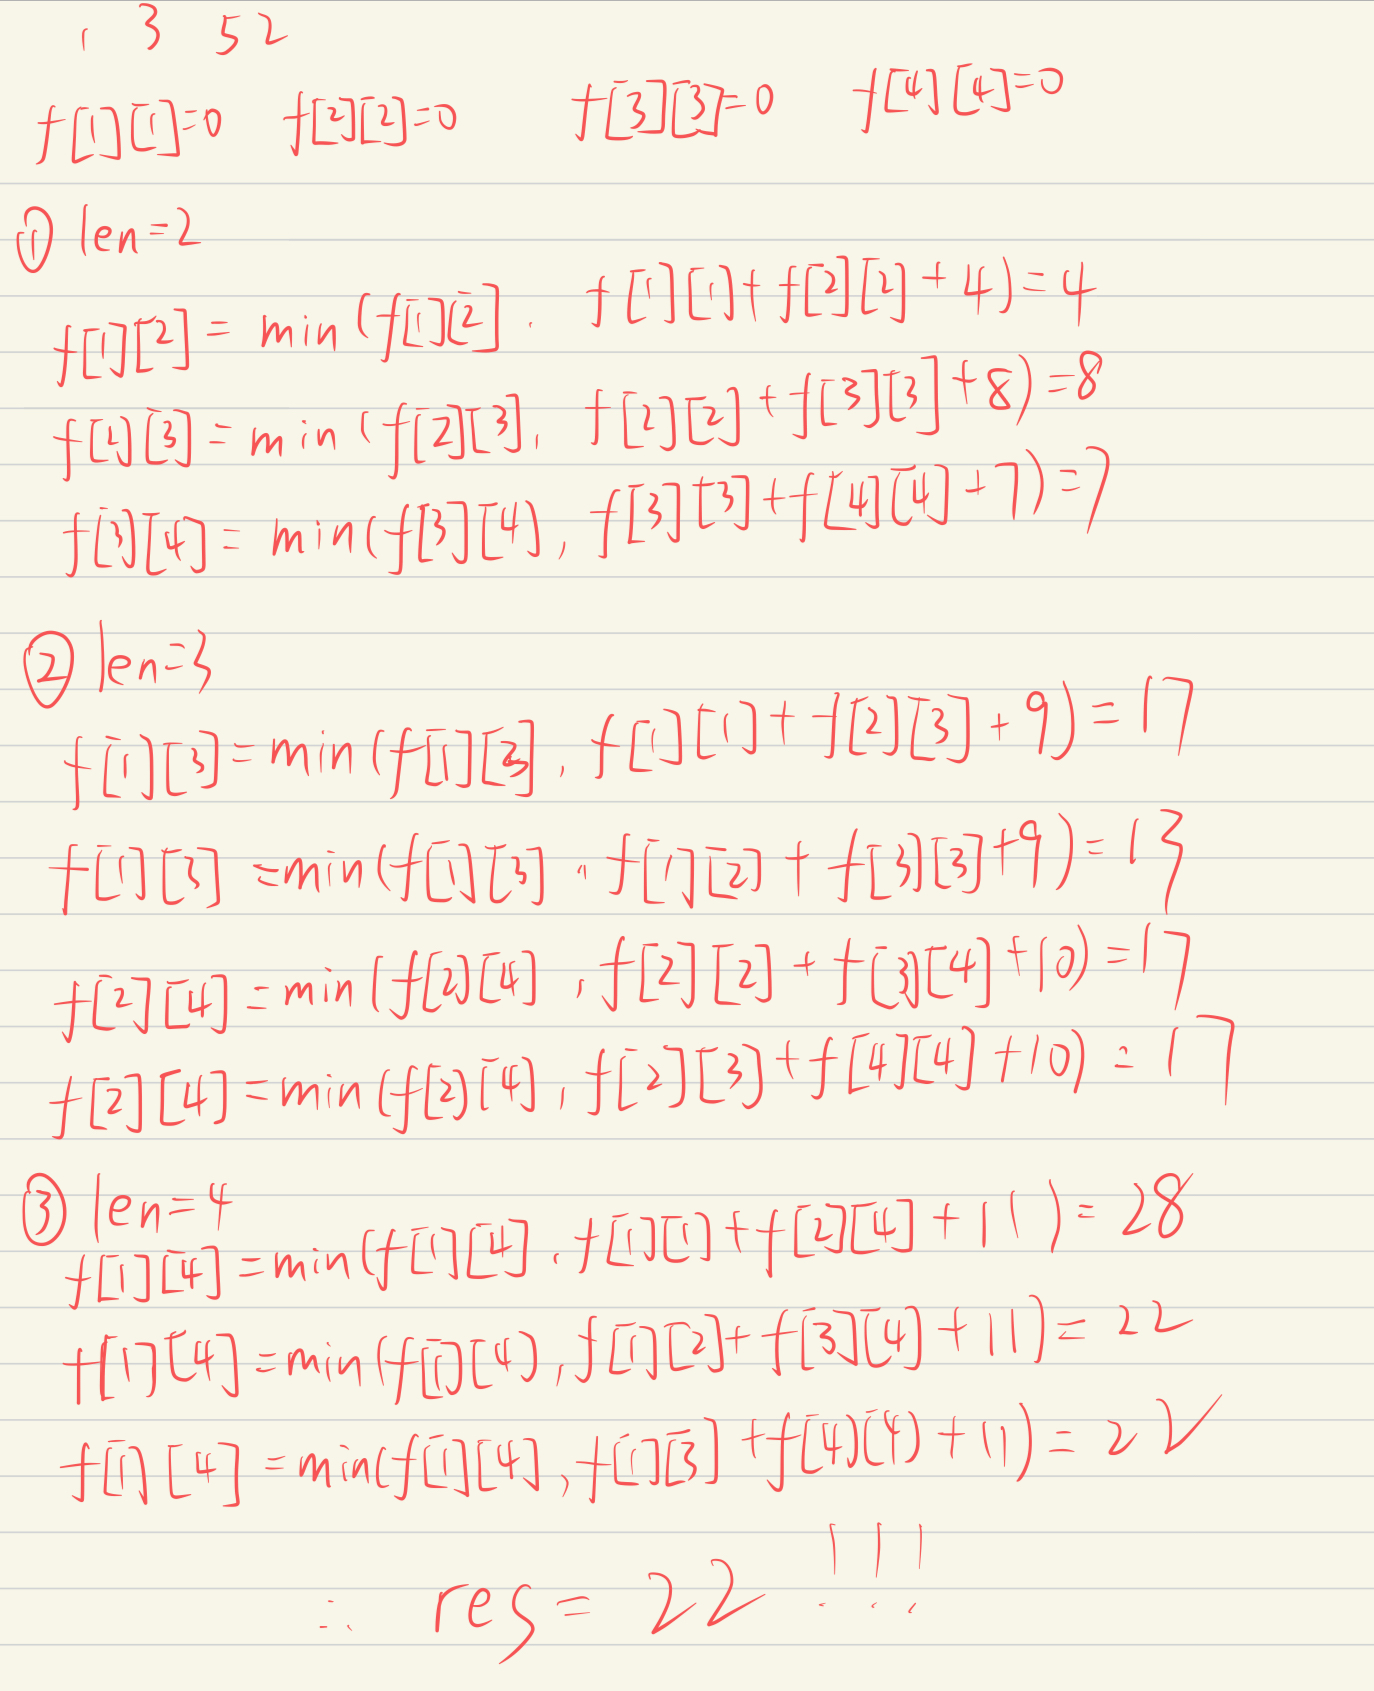 1 3 5 2
f[1][1]=0 f[2][2]=0 f[3][3]=0 f[4][4]=0
① len=2
f[1][2] = min(f[1][2], f[1][1]+f[2][2]+4)=4
f[2][3] = min(f[2][3], f[2][2]+f[3][3]+8)=8
f[3][4] = min(f[3][4], f[3][3]+f[4][4]+7)=7
② len=3
f[1][3]=min(f[1][3], f[1][1]+f[2][3]+9)=17
f[1][3]=min(f[1][3], f[1][2]+f[3][3]+9)=13
f[2][4]=min(f[2][4], f[2][2]+f[3][4]+10)=17
f[2][4]=min(f[2][4], f[2][3]+f[4][4]+10)=17
③ len=4
f[1][4]=min(f[1][4], f[1][1]+f[2][4]+11)=28
f[1][4]=min(f[1][4], f[1][2]+f[3][4]+11)=22
f[1][4]=min(f[1][4], f[1][3]+f[4][4]+11)=22
∴ res=22 !!!